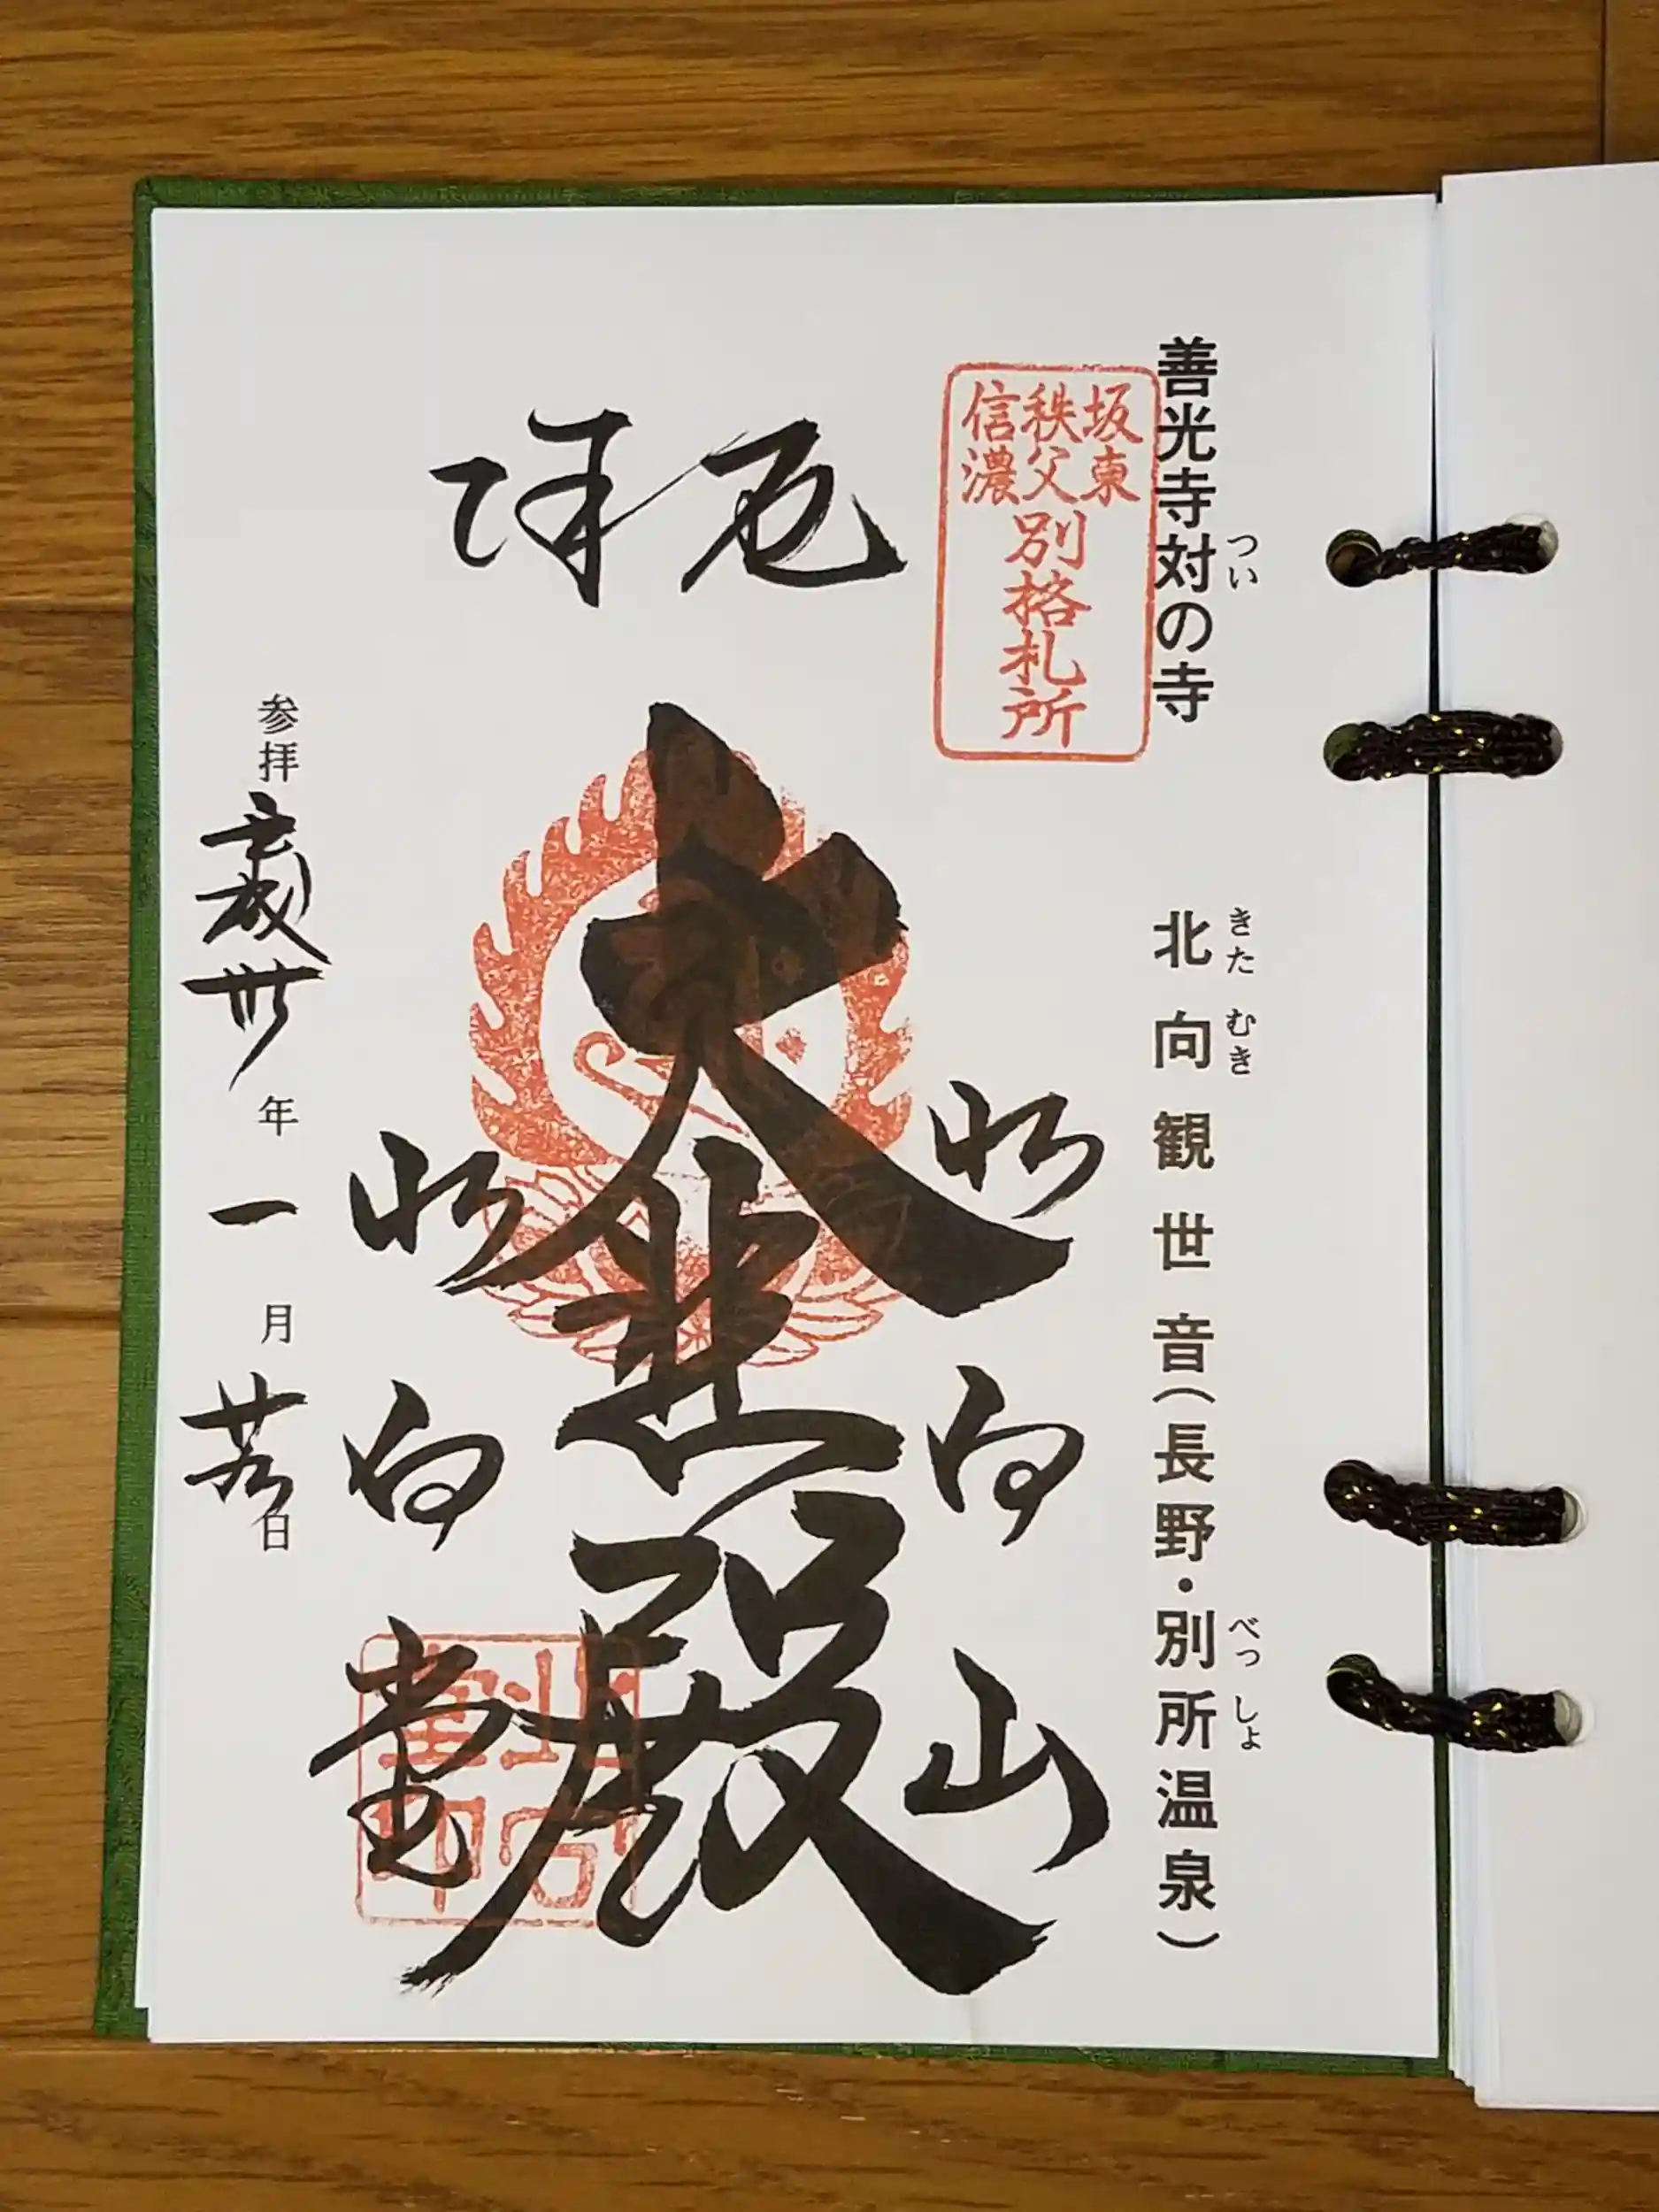 善光寺対の寺
つい
北向観世音(長野・別所温泉)
きた むき
べっ しょ
坂東
秩父
信濃
別格札所
厄除
北向山
大悲殿
北向堂
北向堂印
参拝平成丗年一月 日